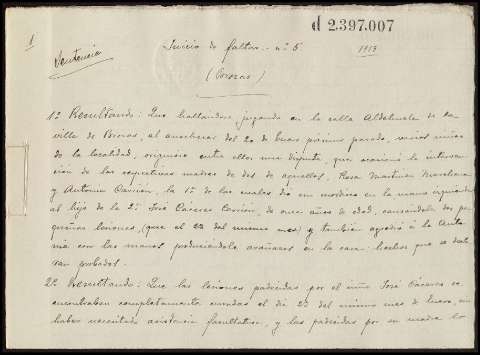 1
d 2.397.007
Juicio de faltas - nº 5 1913
Sentencia
(Brozas)
1º Resultando: Que hallandose jugando en la calla Aldehuela de esta
villa de Brozas, al anochecer del 20 de Enero próximo pasado, varios niños
de la localidad, originóse entre ellos una disputa, que ocasionó la interven-
ción de las respectivas madres de dos de aquellos, Rosa Martínez
y Antonia Carrión, la 1ª de las cuales dió un mordisco en la mano izquierda
al hijo de la 2ª José Cáceres Carrión, de once años de edad, causandole dos pe-
queñas lesiones, (que el 22 del mismo mes) y también agredió á la Anto-
nia con las manos produciéndola arañazos en la cara: hechos que se decla-
ran probados.
2º Resultando: Que las lesiones padecidas por el niño José Cáceres se
encontraban completamente curadas el día 22 del mismo mes de Enero, sin
haber necesitado asistencia facultativa, y las padecidas por su madre lo